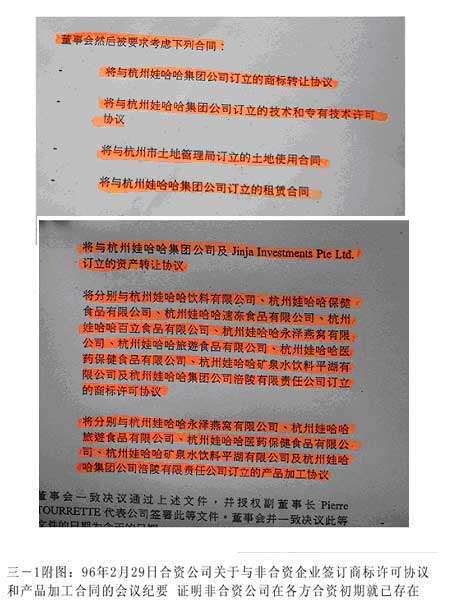 董事会然后被要求考虑下列合同：
将与杭州娃哈哈集团公司订立的商标转让协议
将与杭州娃哈哈集团公司订立的技术和专有技术许可
协议
将与杭州市土地管理局订立的土地使用合同
将与杭州娃哈哈集团公司订立的租赁合同
将与杭州娃哈哈集团公司及 Jinja Investments Pte Ltd.
订立的资产转让协议
将分别与杭州娃哈哈饮料有限公司、杭州娃哈哈保健
食品有限公司、杭州娃哈哈速冻食品有限公司、杭州
娃哈哈百立食品有限公司、杭州娃哈哈永泽燕窝有限
公司、杭州娃哈哈旅遊食品有限公司、杭州娃哈哈医
药保健食品有限公司、杭州娃哈哈矿泉水饮料平湖有
限公司及杭州娃哈哈集团公司涪陵有限责任公司订立
的商标许可协议
将分别与杭州娃哈哈永泽燕窝有限公司、杭州娃哈哈
旅遊食品有限公司、杭州娃哈哈医药保健食品有限公
司、杭州娃哈哈矿泉水饮料平湖有限公司及杭州娃哈
哈集团公司涪陵有限责任公司订立的产品加工协议
董事会一致决议通过上述文件，并授权副董事长 Pierre
TOURRETTE 代表公司签署此等文件。董事会并一致决议此等
文件的日期为今天的日期
三－1附图：96年2月29日合资公司关于与非合资企业签订商标许可协议
和产品加工合同的会议纪要 证明非合资公司在各方合资初期就已存在